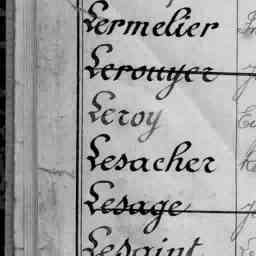 Lermelier
Lerouyer
Leroy
Lesacher
Lesage
Lesaint